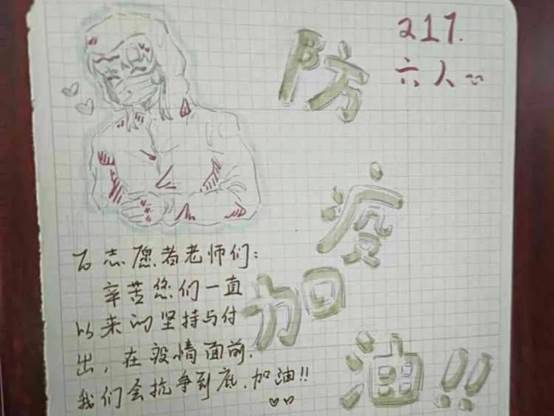 217.
六人
防
疫
加
油!!
志愿者老师们:
辛苦您们一直
以来的坚持与付
出,在疫情面前.
我们会抗争到底.加油!!